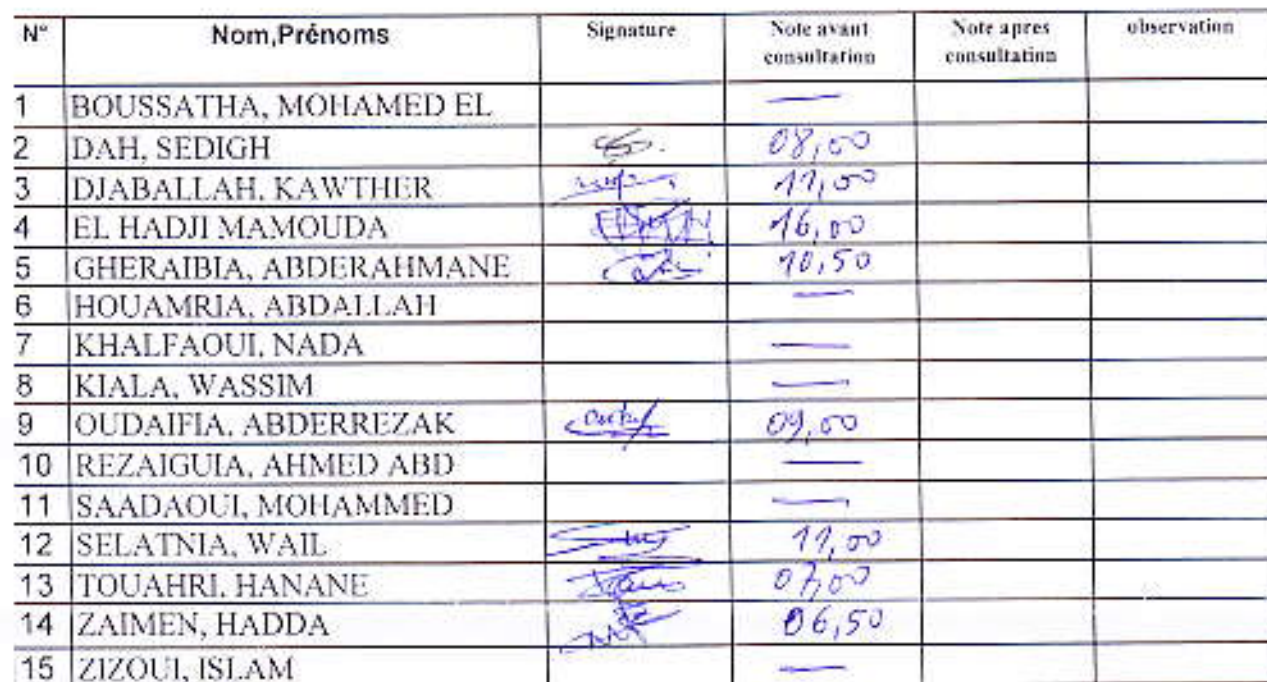 N° Nom,Prénoms Signature Note avant consultation Note apres consultation observation
1 BOUSSATHA, MOHAMED EL —
2 DAH, SEDIGH 08,00
3 DJABALLAH, KAWTHER 11,00
4 EL HADJI MAMOUDA 16,00
5 GHERAIBIA, ABDERAHMANE 10,50
6 HOUAMRIA, ABDALLAH —
7 KHALFAOUI, NADA —
8 KIALA, WASSIM —
9 OUDAIFIA, ABDERREZAK 09,00
10 REZAIGUIA, AHMED ABD —
11 SAADAOUI, MOHAMMED —
12 SELATNIA, WAIL 11,00
13 TOUAHRI, HANANE 07,00
14 ZAIMEN, HADDA 06,50
15 ZIZOUI, ISLAM —